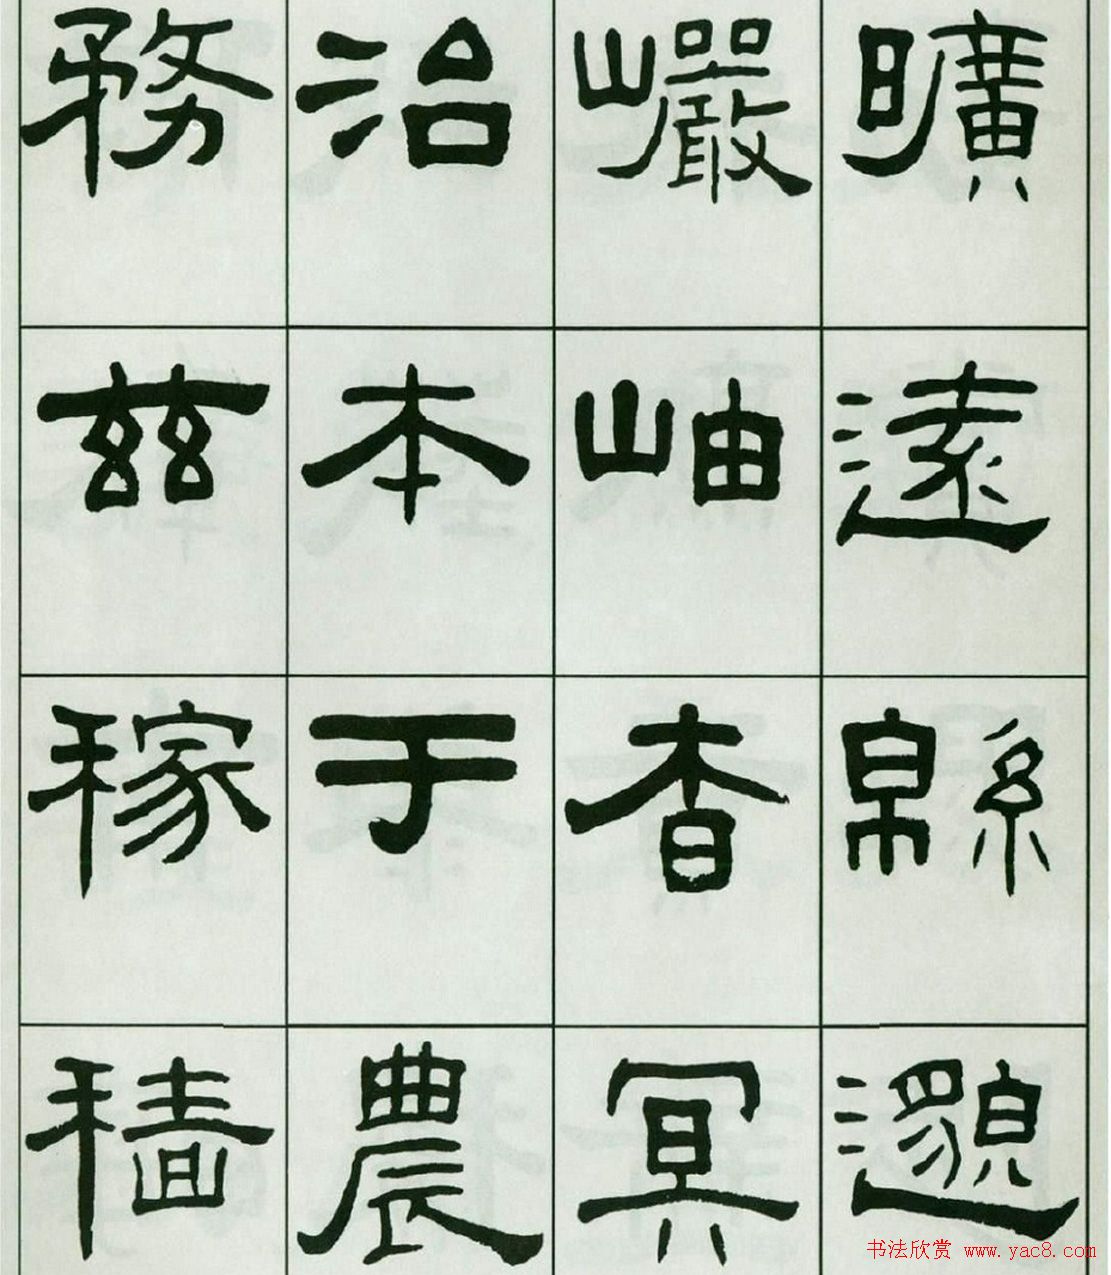 曠遠緜邈
巖岫杳冥
治本于農
務茲稼穡
书法欣赏 www.yac8.com